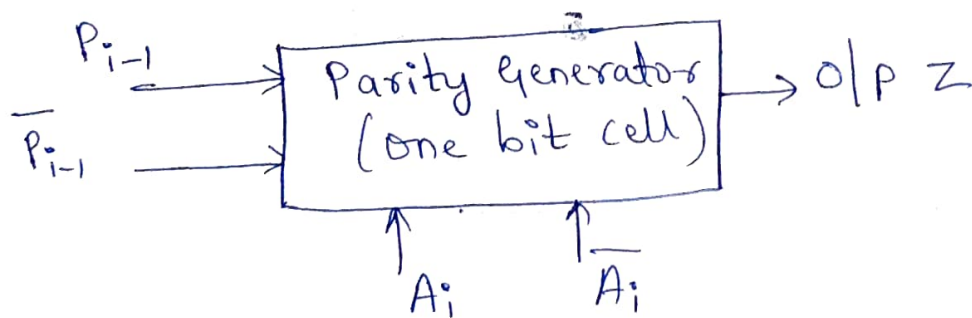 P̅ᵢ₋₁
Pᵢ₋₁
Parity Generator
(one bit cell)
o/p Z
Aᵢ
A̅ᵢ